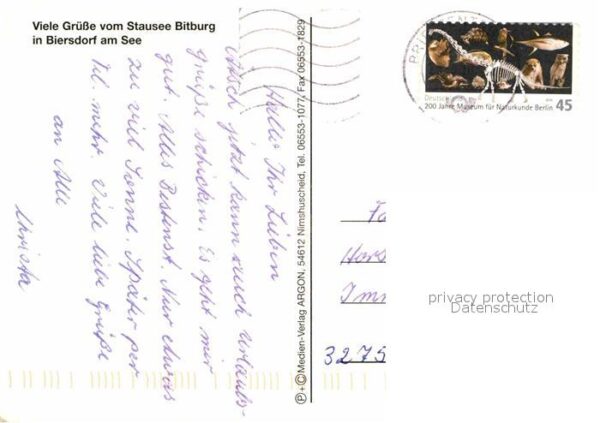 Viele Grüße vom Stausee Bitburg
in Biersdorf am See
Hallo Ihr Lieben
Auch jetzt kann euch Urlaubs-
grüße schicken. Es geht mir
gut. Alles Bestenst. Nur etwas
zu viel Sonne. Später per
Tel. mehr. Viele liebe Grüße
an Alle
Christa
Ⓟ+©Medien-Verlag ARGON, 54612 Nimshuscheid, Tel. 06553-1077, Fax 06553-1829
BRIEFZENT
Deutschland
200 Jahre Museum für Naturkunde Berlin 45
Fa
Hors
Imm
3275
privacy protection
Datenschutz